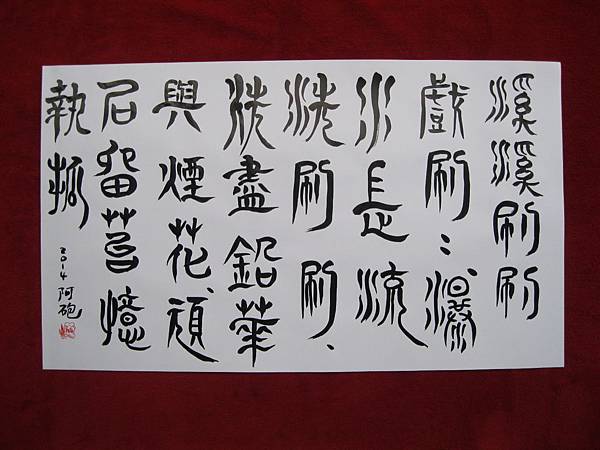 溪溪刷刷
戲刷：瀑
水長流
洗刷刷、
洗盡鉛華
與煙花、頑
石留苔憶
執拗
2014 阿砲